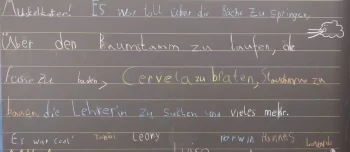 Muskelkater! Es war toll über die Bäche zu springen,
Über den Baumstamm zu laufen, die
Füsse zu baden, Cervela zu braten, Staudämme zu
bauen, die Lehrerin zu suchen und vieles mehr.
Es war cool! Leony